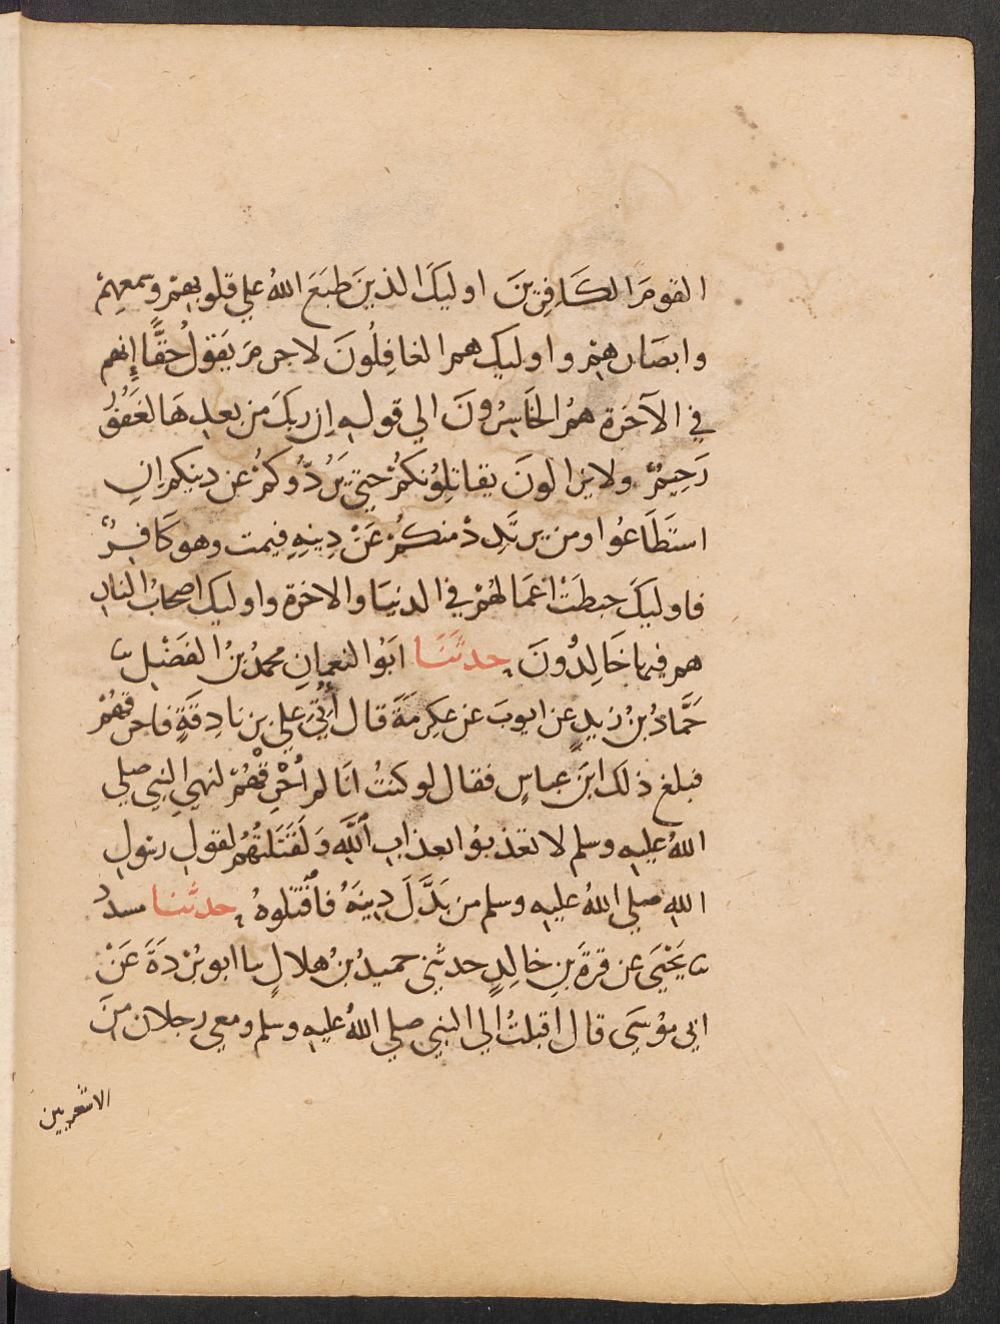 القومَ الكَافِرِينَ اوليكَ الذينَ طبَعَ اللهُ علي قلوبهمْ وسمعِهِمْ
وابصَارهمْ واوليك همرالغافِلُونَ لاجرمَ يَقولُ حقًّا إنهم
في الآخرَة همُ الخَاسِرُونَ الي قوله ان ربكَ من بعدِهَا لغَفُورُ
رَحِيمٌ ولايزالونَ يقاتلُونكمْ حتي يَرُدُّوكمْ عن دينكم انِ
استَطَاعُوا ومن يرتَدِدْ منكُمْ عَنْ دِينِهِ فيمت وهو كَافِرٌ
فاوليكَ حبطَتْ اعْمَالهُمْ في الدنيَا والاخرة واوليك اصحابُ النارِ
هم فيها خَالِدُونَ حدثَنَا ابَوُا النعمانِ محمدُ بنُ الفَضْلِ نا
حَمَّادُ بنُ زيدٍ عن ايوبَ عن عكرِمَةَ قال أُتِيَ علي بزنادِقَةٍ فاحرقهُمْ
فبلغ ذلك ابنَ عباسٍ فقال لو كنتُ انَا لم اُحْرِقْهُمْ لنهي النبي صلي
اللهُ عليه وسلم لا تعذبوُا بعذابِ اللَّهِ وَلَقَتَلتُهُمْ لقولِ رسولِ
اللهِ صلي اللهُ عليه وسلم من بَدَّلَ دِينَهُ فاقْتلوهُ حدثنا مسددُ
نا يَحْيَي عن قرةَ بنِ خالِدٍ حدثني حميدُ بنُ هلالٍ نا ابو بُرْدَةَ عَنْ
ابي موُسَي قال اقبلتُ الي النبي صلي اللهُ عليه وسلم ومعي رجلان منَ
الاشعريين